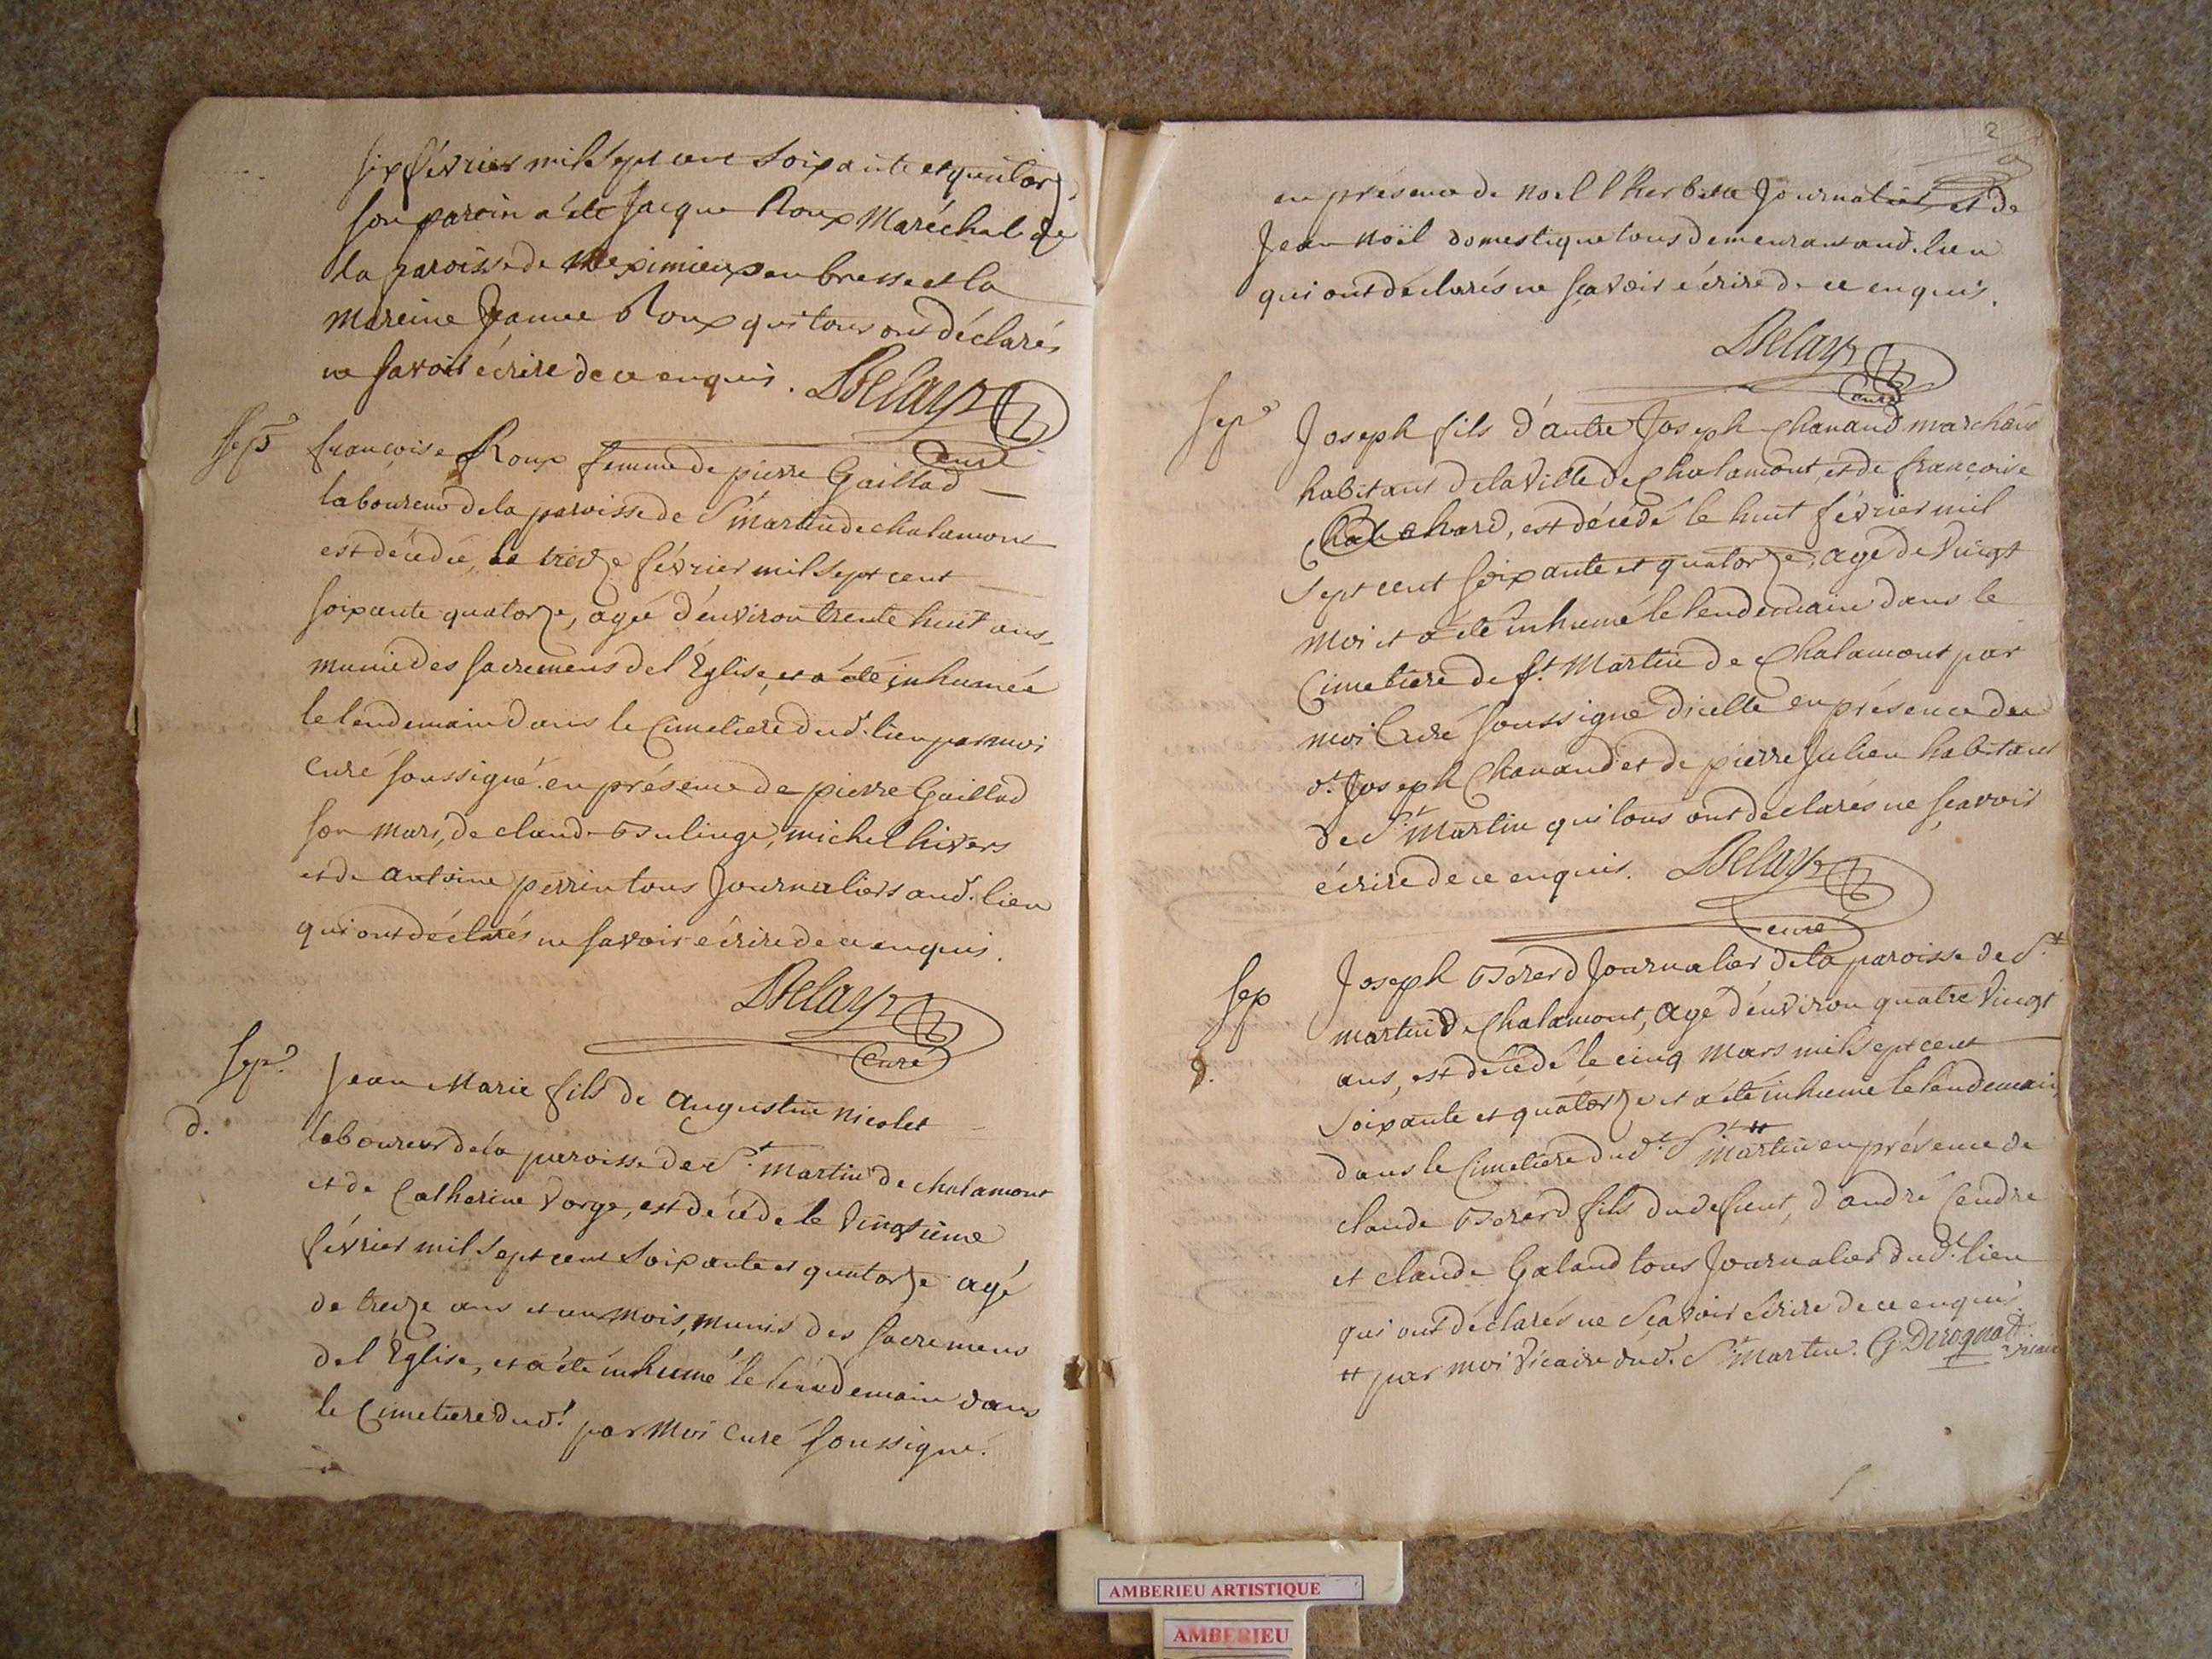 six février mil sept cent soixante et quatorze
son parein a été Jacque Roux Maréchal de
la paroisse de Meximieux en bresse et la
Mareine Jeanne Roux qui tous ont déclarés
ne savoir écrire de ce enquis. Delay
curé
sep.
françoise Roux femme de pierre Gaillad
laboureur de la paroisse de St martin de chalamont
est décédée, le treize février mil sept cent
soixante quatorze, agée d'environ trente huit ans,
munie des sacremens de l'Eglise, et a été inhumée
le lendemain dans le Cimetiere dud. lieu par moi
curé soussigné en présence de pierre Gaillad
son mari, de claude Bulinge, michel hivers
et de antoine perrin tous Journaliers aud. lieu
qui ont déclarés ne savoir écrire de ce enquis.
Delay
curé
sep.
d.
Jean Marie fils de augustin nicolet
laboureur de la paroisse de St. martin de chalamont
et de Catherine Vorge, est décédé le vingtième
février mil sept cent soixante et quatorze agé
de treize ans et un mois, munis des sacremens
de l'Eglise, et a été inhumé le lendemain dans
le Cimetiere dud. par moi curé soussigné.
2
en présence de noel l'herbette Journalier, et de
Jean noël domestique tous demeurans aud. lieu
qui ont déclarés ne sçavoir écrire de ce enquis.
Delay
curé
sep.
Joseph fils d'autre Joseph Chanand marchand
habitant de la Ville de Chalamont, et de françoise
est décédé le huit février mil
sept cent soixante et quatorze, agé de vingt
moi et a été inhumé le lendemain dans le
Cimetiere de St. Martin de Chalamont par
moi Curé soussigné d'icelle en présence de
d. Joseph Chanand et de pierre Julien habitant
de St. Martin qui tous ont déclarés ne sçavoir
écrire de ce enquis. Delay
curé
sep
d.
Joseph Bererd Journalier de la paroisse de St.
martin de Chalamont, agé d'environ quatre vingt
ans, est décédé le cinq mars mil sept cent
soixante et quatorze et a été inhumé le lendemain
dans le Cimetiere dud. St. martin en présence de
claude Bererd fils du defunt, d'andré Cendre
et claude Galand tous Journalier dud. lieu
qui ont déclarés ne sçavoir écrire de ce enquis
# par moi Vicaire dud. St. Martin. Vicaire
AMBERIEU ARTISTIQUE
AMBERIEU